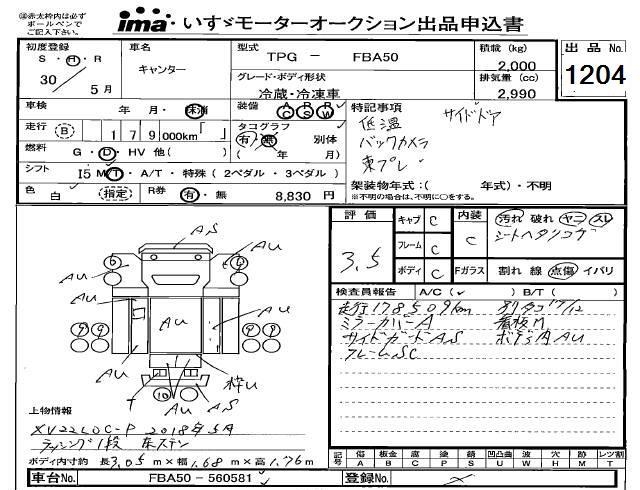 ㊟赤太枠内は必ず
ボールペンで
ご記入下さい。
ima いすゞモーターオークション出品申込書
初度登録 S・H・R 30 年 5月
車名 キャンター
型式 TPG － FBA50
グレード・ボディ形状 冷蔵・冷凍車
積載 (kg) 2,000
排気量 (cc) 2,990
出品No. 1204
車検 年 月・抹消
走行 B 179,000km「 」
燃料 G・D・HV 他( )
シフト I5 MT・A/T・特殊(2ペダル・3ペダル)
色 白 (指定) R券 有・無 8,830 円
装備 AC RS RW
タコグラフ 有・無 別体
( 年 月)
特記事項 サイドドア
低温
バックカメラ
東プレ
架装物年式:( 年式)・不明
※不明の場合は、不明に○をする。
評価 3.5
キャブ C
フレーム C
ボディ C
内装 C
Fガラス
汚れ 破れ ヤニ スレ
シートヘタリコゲ
割れ 線 点傷 イバリ
検査員報告 A/C(✓) B/T( )
走行178509km 別タコ17/12
ミラーカバーA 看板M
サイドガードAS ボディ内AU
フレームSC
AS
AU
AU
AU
AU
AU
AU
枠U
AU
AS
6
6
9
9
9
9
10
上物情報
XV22LDC-P 2018年5月
ラッシング1段 床ステン
ボディ内寸約 長3.05m×幅1.68m×高1.76m
記号 傷A 板金B 腐C 塗P 錆S 凹凸曲U 波W 穴H 跡M レツ割T
車台No. FBA50-560581 登録No.